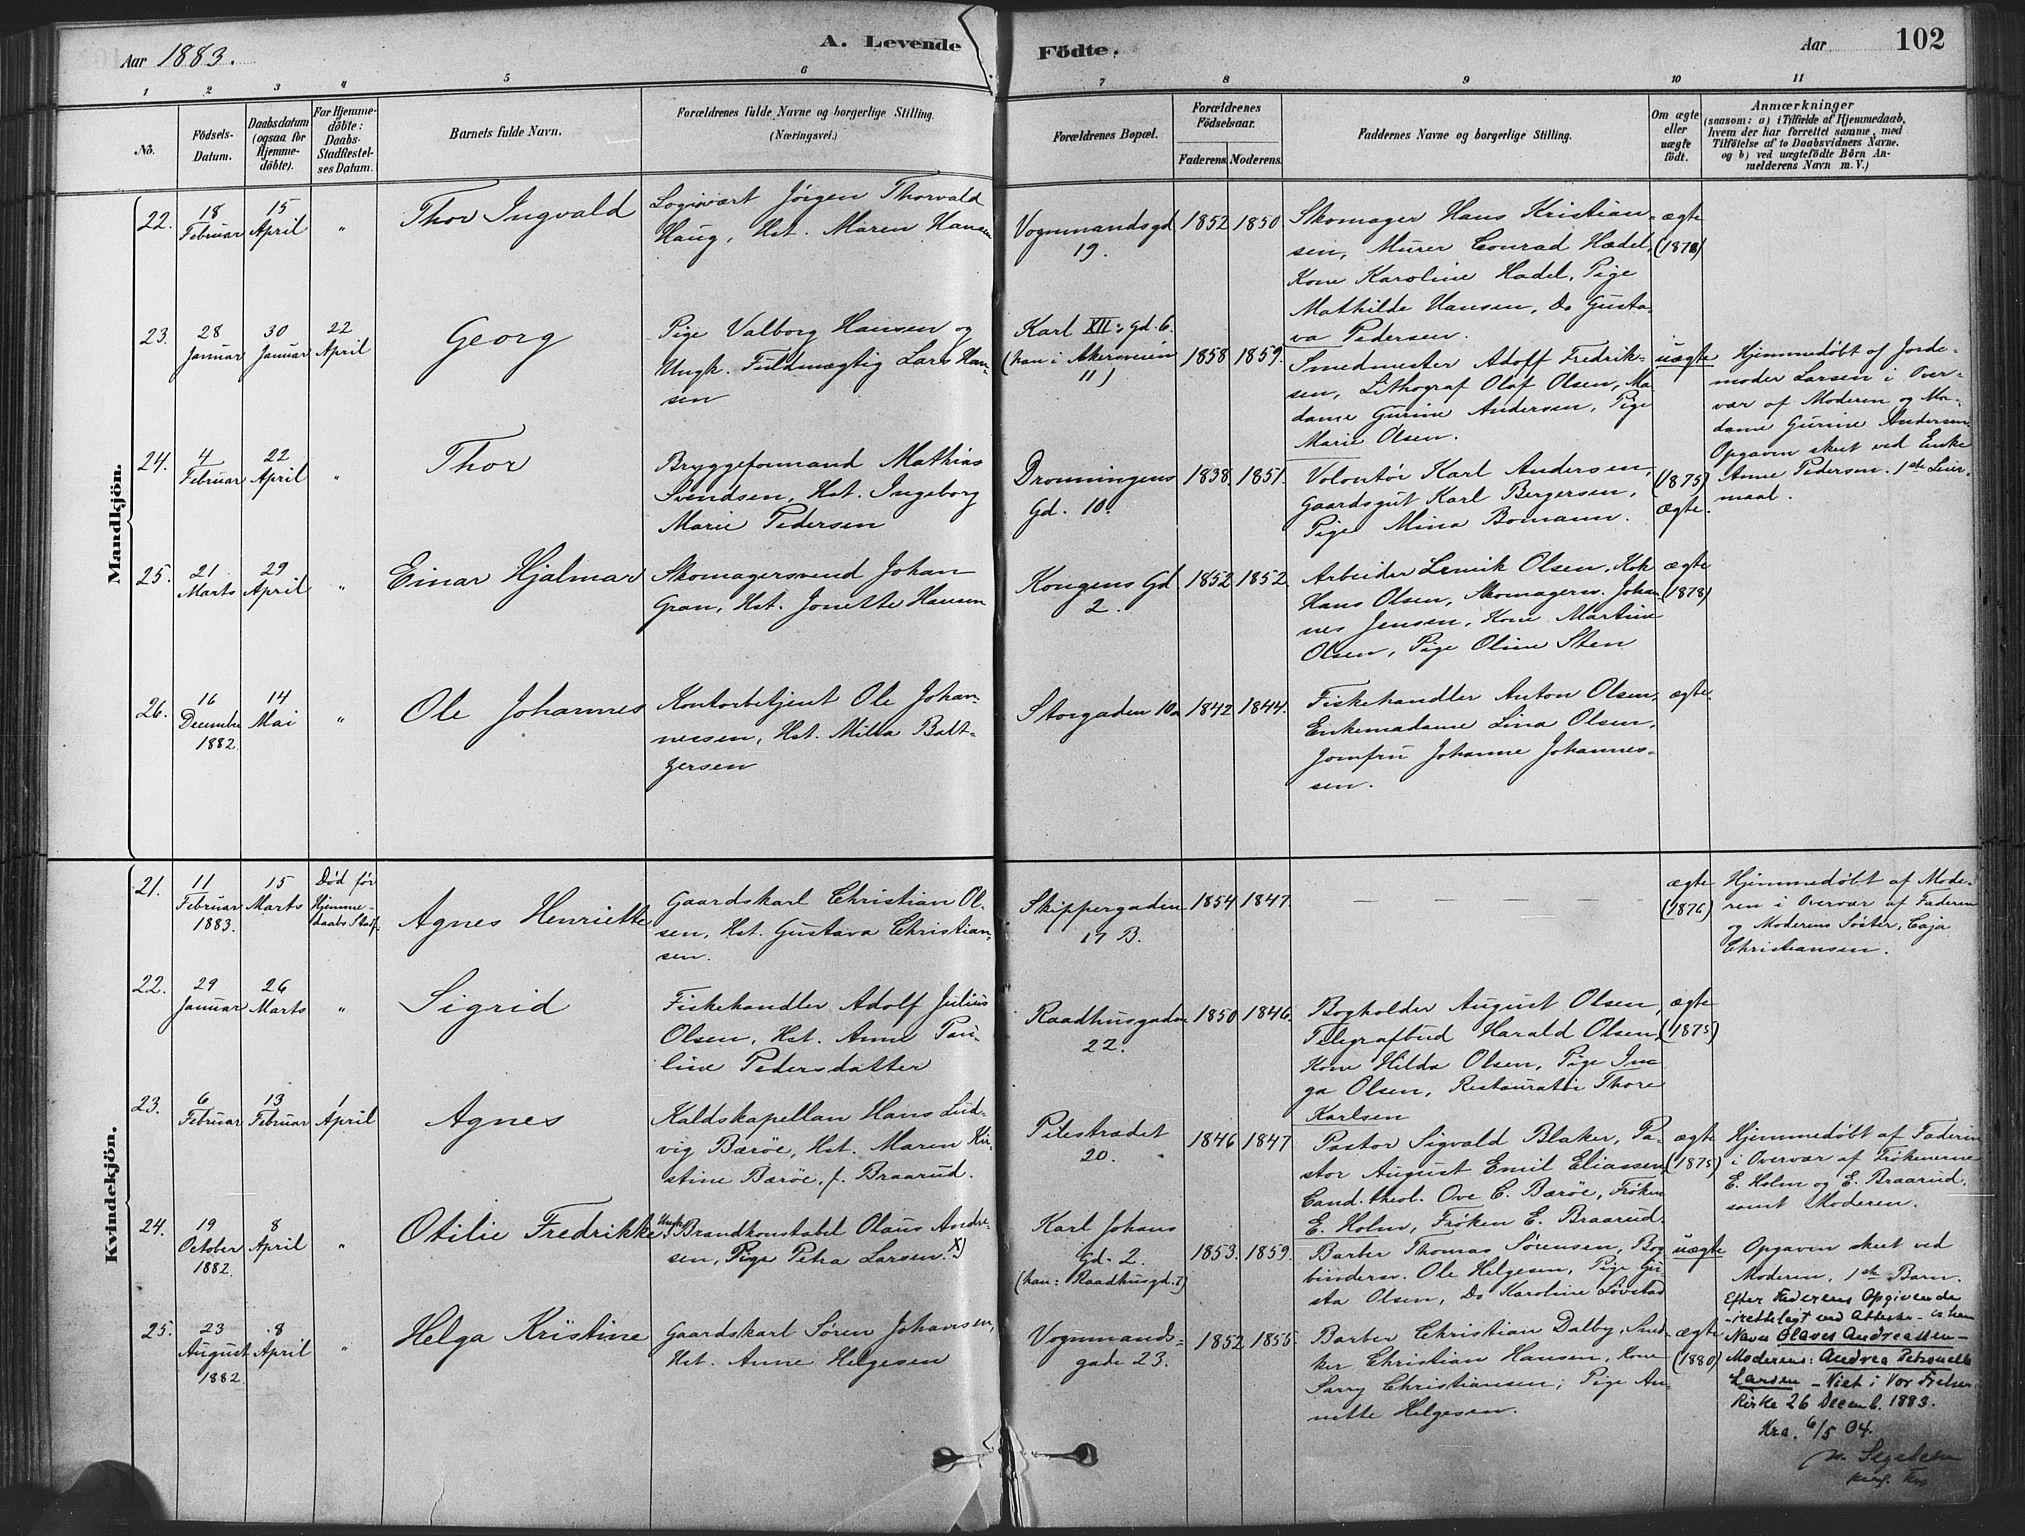 Aar 1883.
A. Levende Födte.
Aar
102
1 2 3 4 5 6 7 8 9 10 11
No.
Födsels-
Datum.
Daabsdatum
(ogsaa for
Hjemme-
döbte).
For Hjemme-
döbte:
Daabs-
Stadfestel-
ses Datum.
Barnets fulde Navn.
Forældrenes fulde Navne og borgerlige Stilling.
(Næringsvei.)
Forældrenes Bopæl.
Forældrenes
Födselsaar.
Faderens. Moderens.
Faddernes Navne og borgerlige Stilling.
Om ægte
eller
uægte
födt.
Anmærkninger
(saasom: a) i Tilfælde af Hjemmedaab,
hvem der har forrettet samme, med
Tilföielse af to Daabsvidners Navne.
og b) ved uægtefödte Börn An-
melderens Navn m. V.)
Mandkjön.
22.
18
Februar
15
April
"
Thor Ingvald
Logivært Jörgen Thorvald
Haug, Hst. Maren Hansen
Vognmandsgd
19.
1852 1850
Skomager Hans Kristian-
sen, Murer Conrad Hædel,
Kone Karoline Hadel, Pige
Mathilde Hansen, Do Gusta-
va Pedersen.
ægte
(1878)
23.
28
Januar
30
Januar
22
April
Georg
Pige Valborg Hansen og
Ungk. Fuldmægtig Lars Han-
sen
Karl XII: Gd. 6.
(han i Akersveien
11)
1858 1859.
Smedmester Adolf Fredrik-
sen, Lithograf Olaf Olsen, Ma
dame Gurine Andersen, Pige
Marie Olsen.
uægte
Hjemmedøbt af Jorde-
moder Larsen i Over-
vær af Moderen og Ma-
dame Gurine Andersen.
Opgaven skeet ved Enke
Anne Pedersen. 1ste Leier-
maal.
24.
4
Februar
22
April
"
Thor
Bryggeformand Mathias
Svendsen, Hst. Ingeborg
Marie Pedersen
Dronningens
Gd. 10.
1838. 1851.
Volontør Karl Andersen,
Gaardsgut Karl Bergersen,
Pige Mina Bomann.
(1875)
ægte.
25.
21
Marts
29
April
"
Einar Hjalmar
Skomagersvend Johan
Gran, Hst. Jonette Hansen
Kongens Gd
2.
1852 1852
Arbeider Lemik Olsen, Kok
Hans Olsen, Skomagersv. Johan
nes Jensen, Kone Martine
Olsen, Pige Oline Sten
ægte
(1878)
26.
16
December
1882.
14
Mai
"
Ole Johannes
Kontorbetjent Ole Johan-
nessen, Hst. Milla Balt-
zersen
Storgaden 10a
1842 1844.
Fiskehandler Anton Olsen,
Enkemadame Lina Olsen,
Jomfru Johanne Johannes-
sen.
ægte.
Kvindekjön.
21.
11
Februar
1883.
15
Marts
Død før
Hjemme-
daabs Stadf.
Agnes Henriette
Gaardskarl Christian Ol-
sen, Hst. Gustava Christian-
sen.
Skippergaden
17 B.
1854 1847.
— — — — —
ægte
(1876)
Hjemmedøbt af Mode-
ren i Overvær af Faderen
og Moderens Søster, Caja
Christiansen.
22.
29
Januar
26
Marts
"
Sigrid
Fiskehandler Adolf Julius
Olsen, Hst. Anne Pau-
line Pedersdatter
Raadhusgaden
22.
1850 1846.
Bogholder August Olsen,
Telegrafbud Harald Olsen,
Kone Hilda Olsen, Pige In-
ga Olsen, Thore
Karlsen
ægte
(1875)
23.
6
Februar
13
Februar
1
April
Agnes
Kaldskapellan Hans Lud-
vig Bærøe, Hst. Maren Kir-
stine Bærøe, f. Braarud.
Pilestrædet
20.
1846 1847
Pastor Sigvald Blaker, Pa-
stor August Emil Eliassen,
Cand. theol. Ove C. Bærøe, Frøken
E. Holm, Frøken E. Braarud.
ægte
(1875)
Hjemmedøbt af Faderen
i Overvær af Frøknerne
E. Holm og E. Braarud,
samt Moderen.
24.
19
October
1882.
8
April
"
Otilie Fredrikke
Ungk. Brandkonstabel Olaus Andre-
sen, Pige Petra Larsen. X)
Karl Johans
Gd. 2.
(han: Raadhusgd. 7)
1853. 1859.
Barber Thomas Sørensen, Bog
bindersv. Ole Helgesen, Pige Gu
sta Olsen, Do Karoline Løvstad
uægte
Opgaven skeet ved
Moderen. 1ste Barn.
Efter Faderens Opgivende
- rettelagt ved Attester - er hans
Navn Olaves Andreassen -
Moderens: Andrea Petronelle
Larsen - Viet i Vor Frelser
Kirke 26 Decemb. 1883.
Kra. 6/5 04.
25.
23
August
1882.
8
April
"
Helga Kristine
Gaardskarl Søren Johansen,
Hst. Anne Helgesen
Vognmands-
gade 23.
1852 1855.
Barber Christian Dalby, Snid-
ker Christian Hansen, Kone
Sarry Christiansen, Pige An-
nette Helgesen.
ægte
(1880)